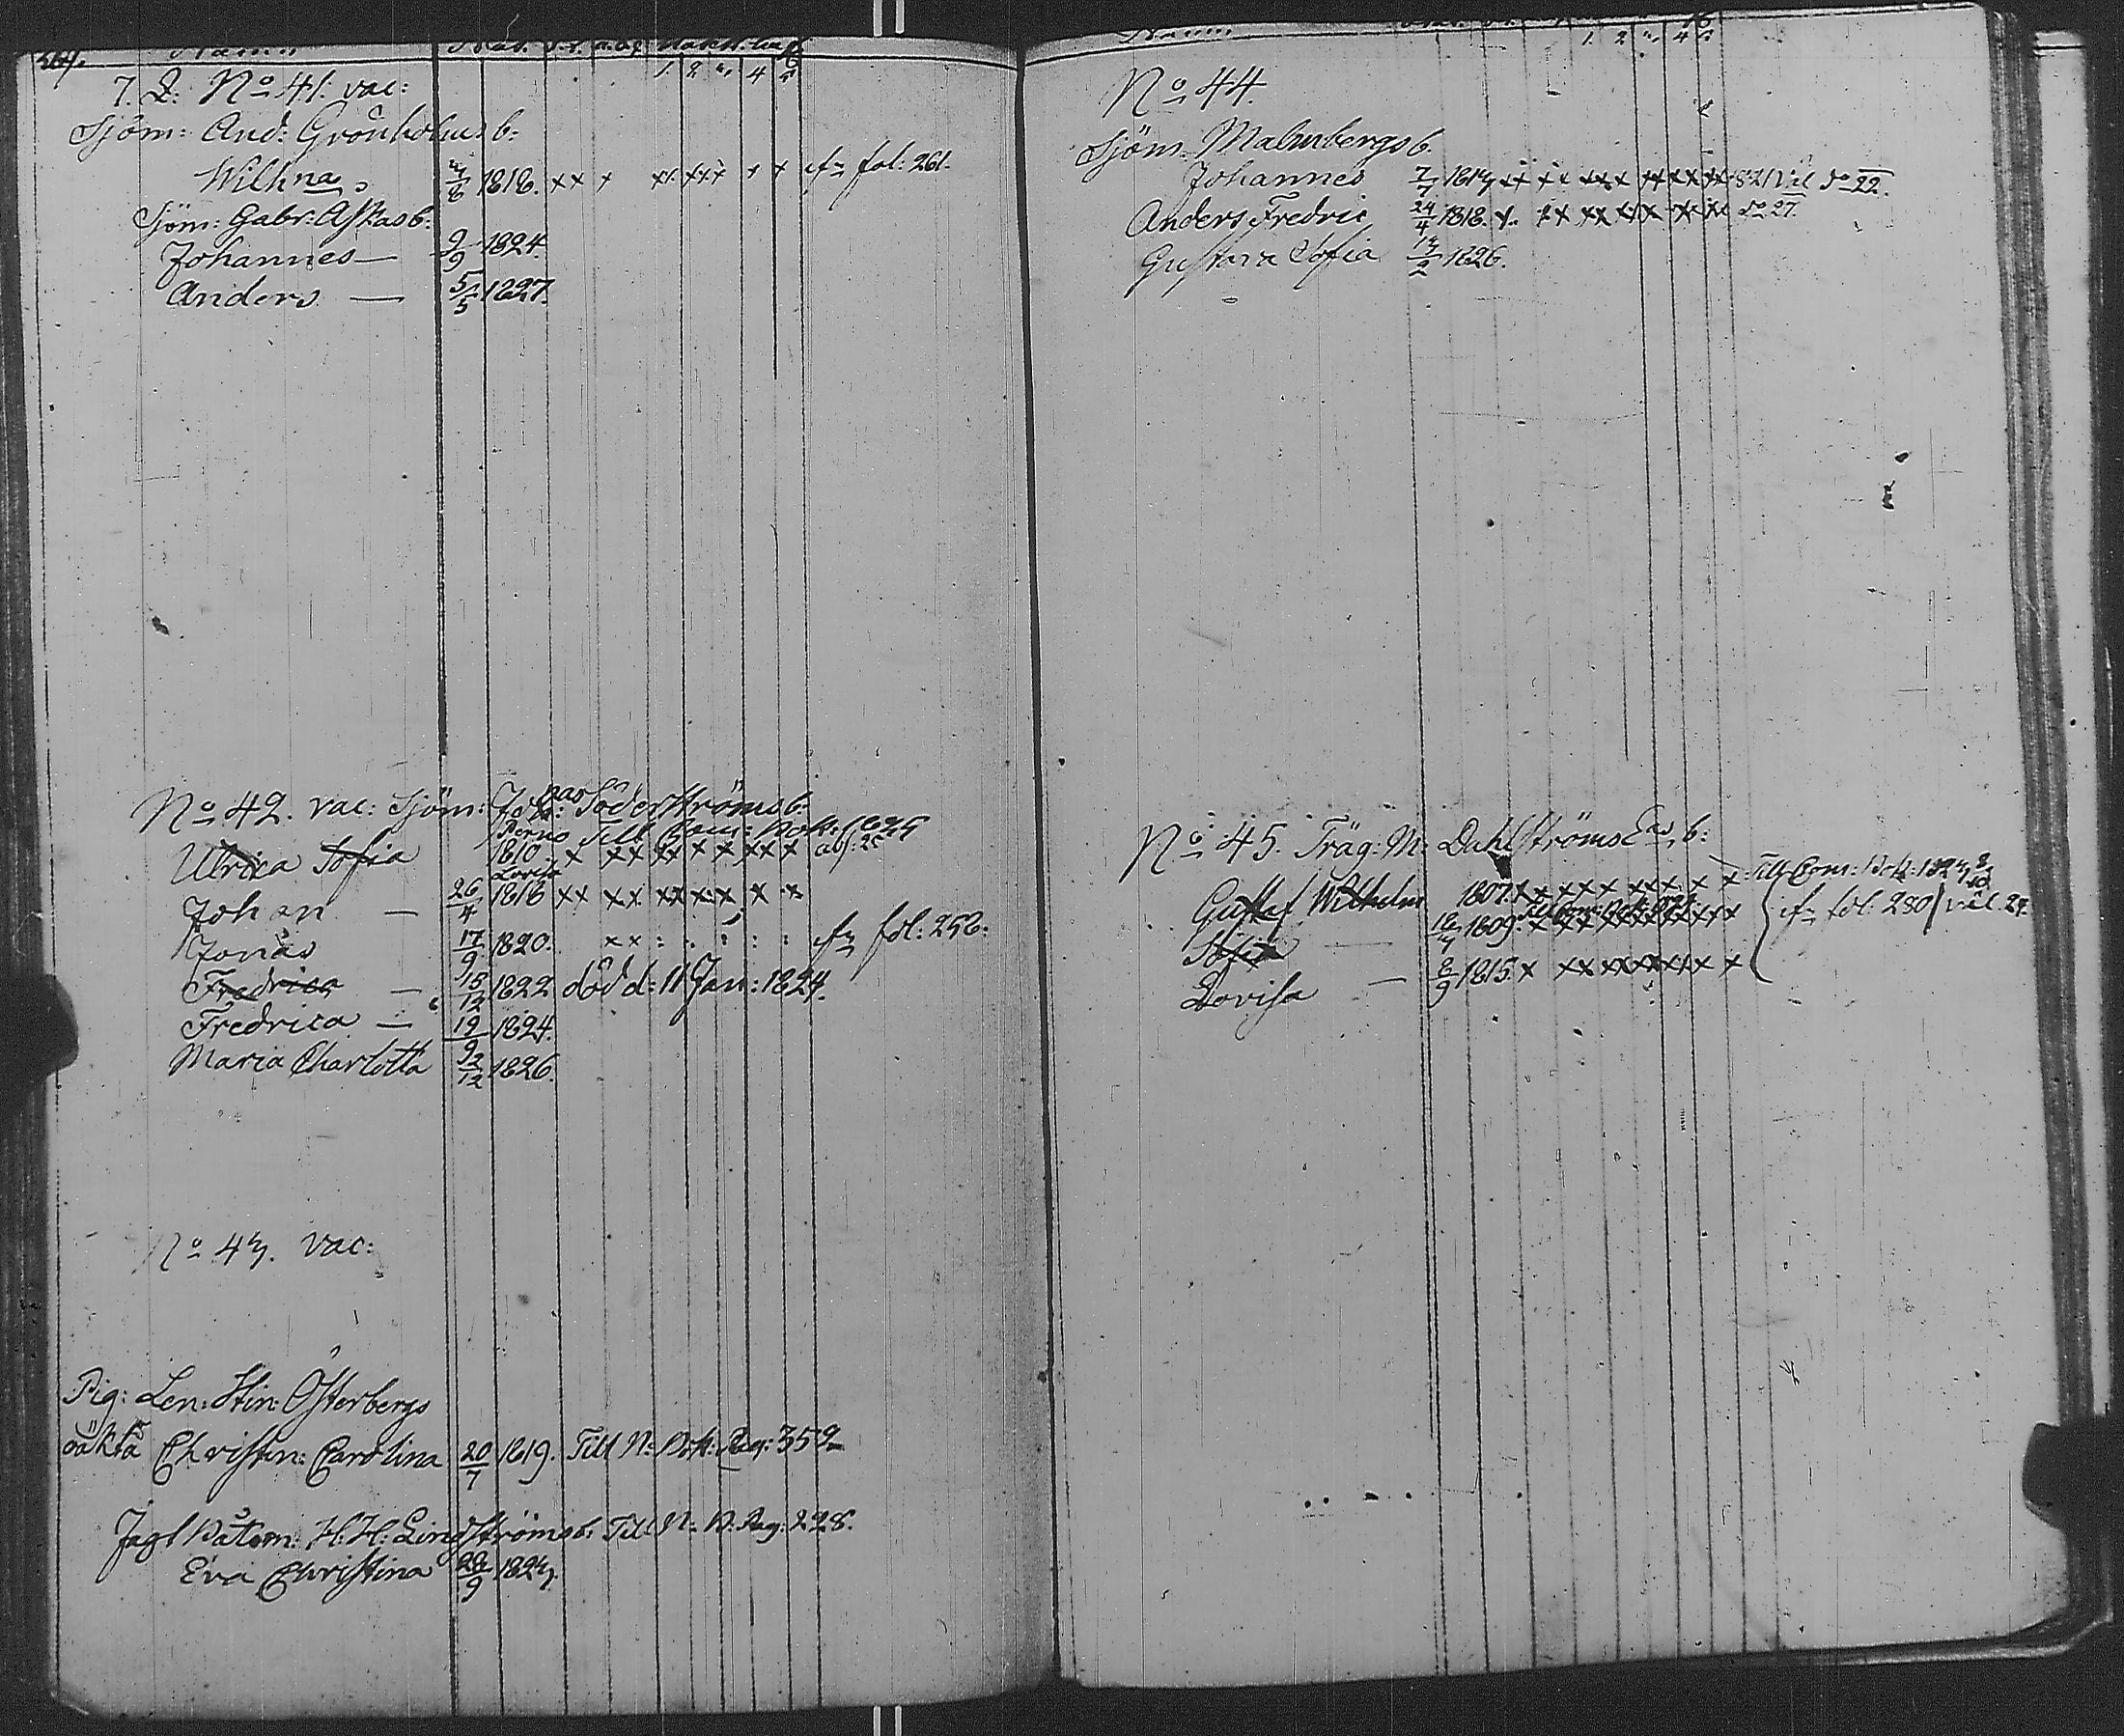 264.
Namn
1. 2. 3. 4. 5.
7. Q: No 41. vac:
Sjöm: And: Grönholms b:
Wilhna 3/8 1818. xx x xx xxx x x cfr fol: 261.
Sjöm: Gabr: Askas b:
Johannes — 9/9 1824.
Anders — 5/5 1827.
No 42. vac: Sjöm: Jonas Söderströms b:
Perno Till Com: Bok: 1825
Ulrica Sofia 1810 x xx xx x x xx x abs: 25
Lovisa
Johan — 26/4 1818 xx xx xx x x x x
Jonas 17/9 1820. xx cfr fol: 252:
Fredrica — 15/12 1822 död d: 11 Jan: 1824.
Fredrica — 19/9 1824.
Maria Charlotta 3/12 1826.
No 43. vac:
Pig: Len: Stin: Österbergs
oäkta Christin: Carolina 20/7 1819. Till N: Bok: Pag: 359
Jagt Båtsm: H: H: Lindströms b: Till N: B: Pag: 228.
Eva Christina 22/9 1823.
Namn
1. 2. 3. 4. 5.
No 44.
Sjöm: Malmbergs b.
Johannes 7/7 1813 xx xx xxx xx xx xx
Anders Fredric 24/4 1818. x. xx xx xx x x So 27.
Gustava Sofia 13/2 1826.
No 45. Träg: M: Dahlströms b:
Gustaf Wilhelm 1807. x x xx x xxx x x Till Com: Bok: 1823
Till Com: Bok:
Sofia — 18/4 1809. x xx xxxxxxxx cfr fol: 280
Lovisa — 8/9 1815. x xx xxxxxx x